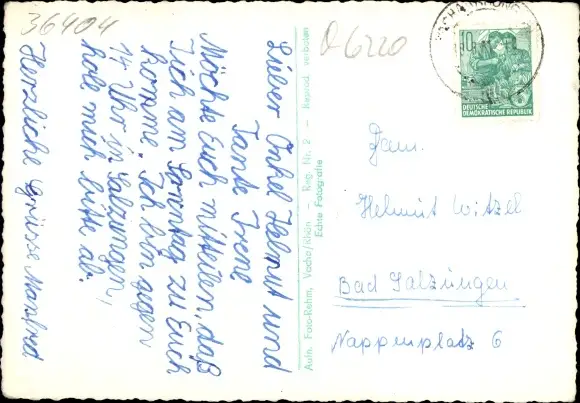 36404
Lieber Onkel Helmut und
Tante Irene
Möchte Euch mitteilen, daß
Ich am Sonntag zu Euch
komme. Ich bin gegen
14 Uhr in Salzungen,
hole mich bitte ab.
Herzliche Grüsse Manfred
Aufn. Foto-Rehm, Vacha/Rhön - Reg. Nr. 2 - Reprod. verboten
Echte Fotografie
06220
10
DEUTSCHE
DEMOKRATISCHE REPUBLIK
Fam.
Helmut Witzel
Bad Salzungen
Nappenplatz 6